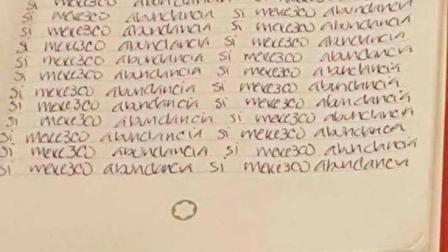 si merezco abundancia si merezco abundancia
si merezco abundancia si merezco abundancia
si merezco abundancia si merezco abundancia
si merezco abundancia si merezco abundancia
si merezco abundancia si merezco abundancia
si merezco abundancia si merezco abundancia
si merezco abundancia si merezco abundancia
si merezco abundancia si merezco abundancia
si merezco abundancia si merezco abundancia
si merezco abundancia si merezco abundancia
si merezco abundancia si merezco abundancia
si merezco abundancia si merezco abundancia